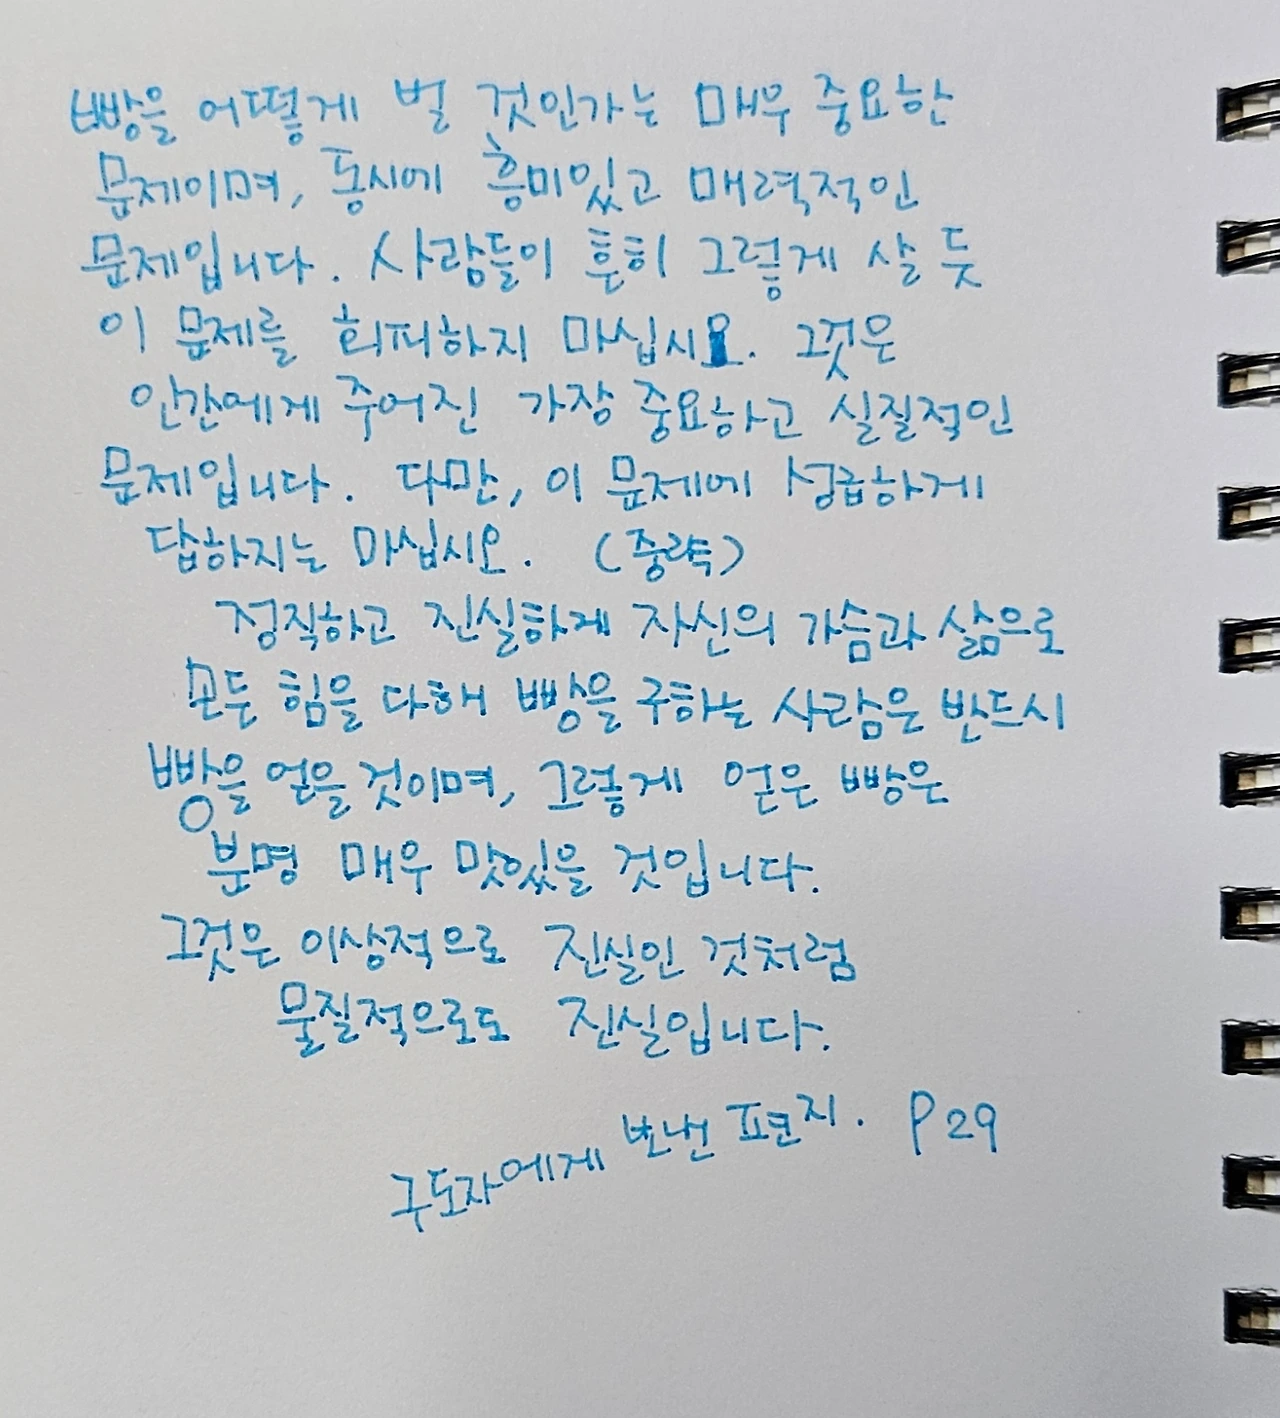 빵을 어떻게 벌 것인가는 매우 중요한
문제이며, 동시에 흥미있고 매력적인
문제입니다. 사람들이 흔히 그렇게 살 듯
이 문제를 회피하지 마십시오. 그것은
인간에게 주어진 가장 중요하고 실질적인
문제입니다. 다만, 이 문제에 성급하게
답하지는 마십시오. (중략)
정직하고 진실하게 자신의 가슴과 삶으로
모두 힘을 다해 빵을 구하는 사람은 반드시
빵을 얻을 것이며, 그렇게 얻은 빵은
분명 매우 맛있을 것입니다.
그것은 이상적으로 진실인 것처럼
물질적으로도 진실입니다.
구도자에게 보낸 편지. P 29